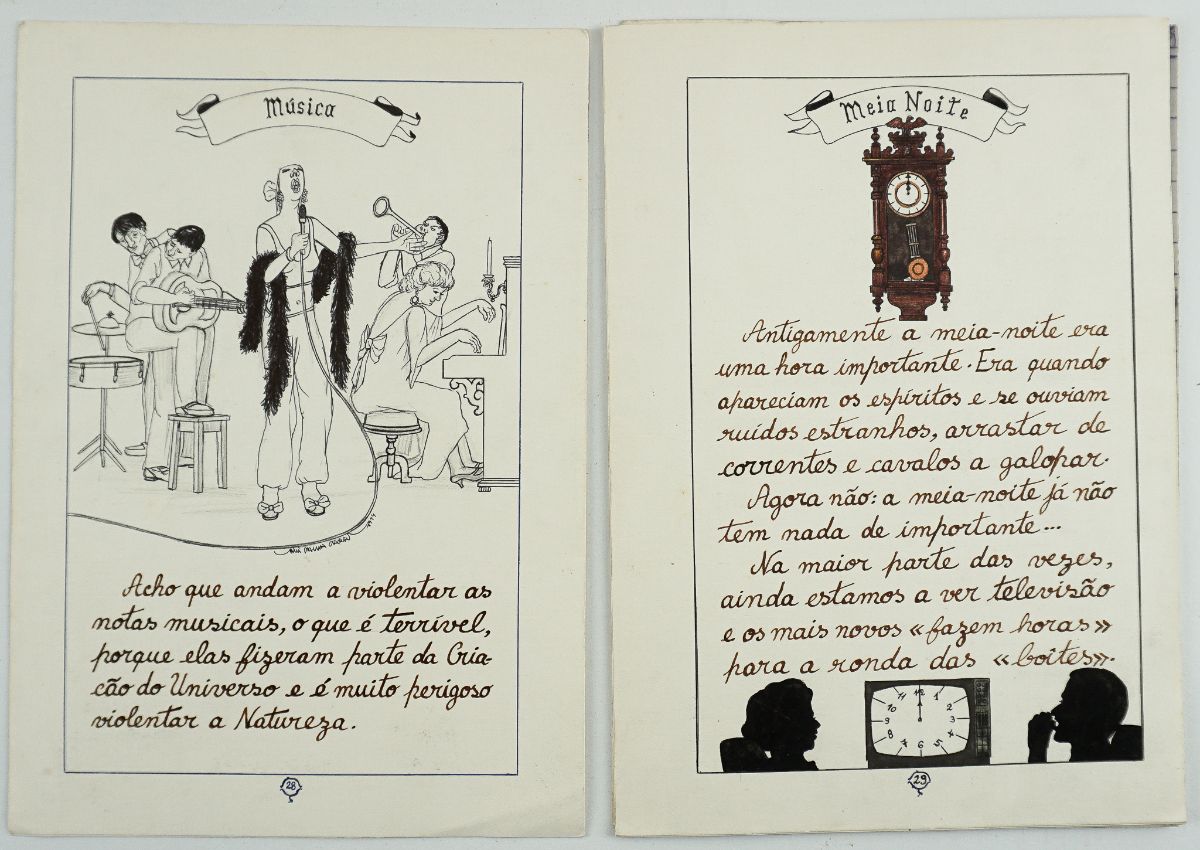 Música
Acho que andam a violentar as
notas musicais, o que é terrível,
porque elas fizeram parte da Cria-
ção do Universo e é muito perigoso
violentar a Natureza.
28
Meia Noite
Antigamente a meia-noite era
uma hora importante. Era quando
apareciam os espíritos e se ouviam
ruídos estranhos, arrastar de
correntes e cavalos a galopar.
Agora não: a meia-noite já não
tem nada de importante...
Na maior parte das vezes,
ainda estamos a ver televisão
e os mais novos «fazem horas»
para a ronda das «boîtes».
11 12 1
10 2
9 3
8 4
7 6 5
29